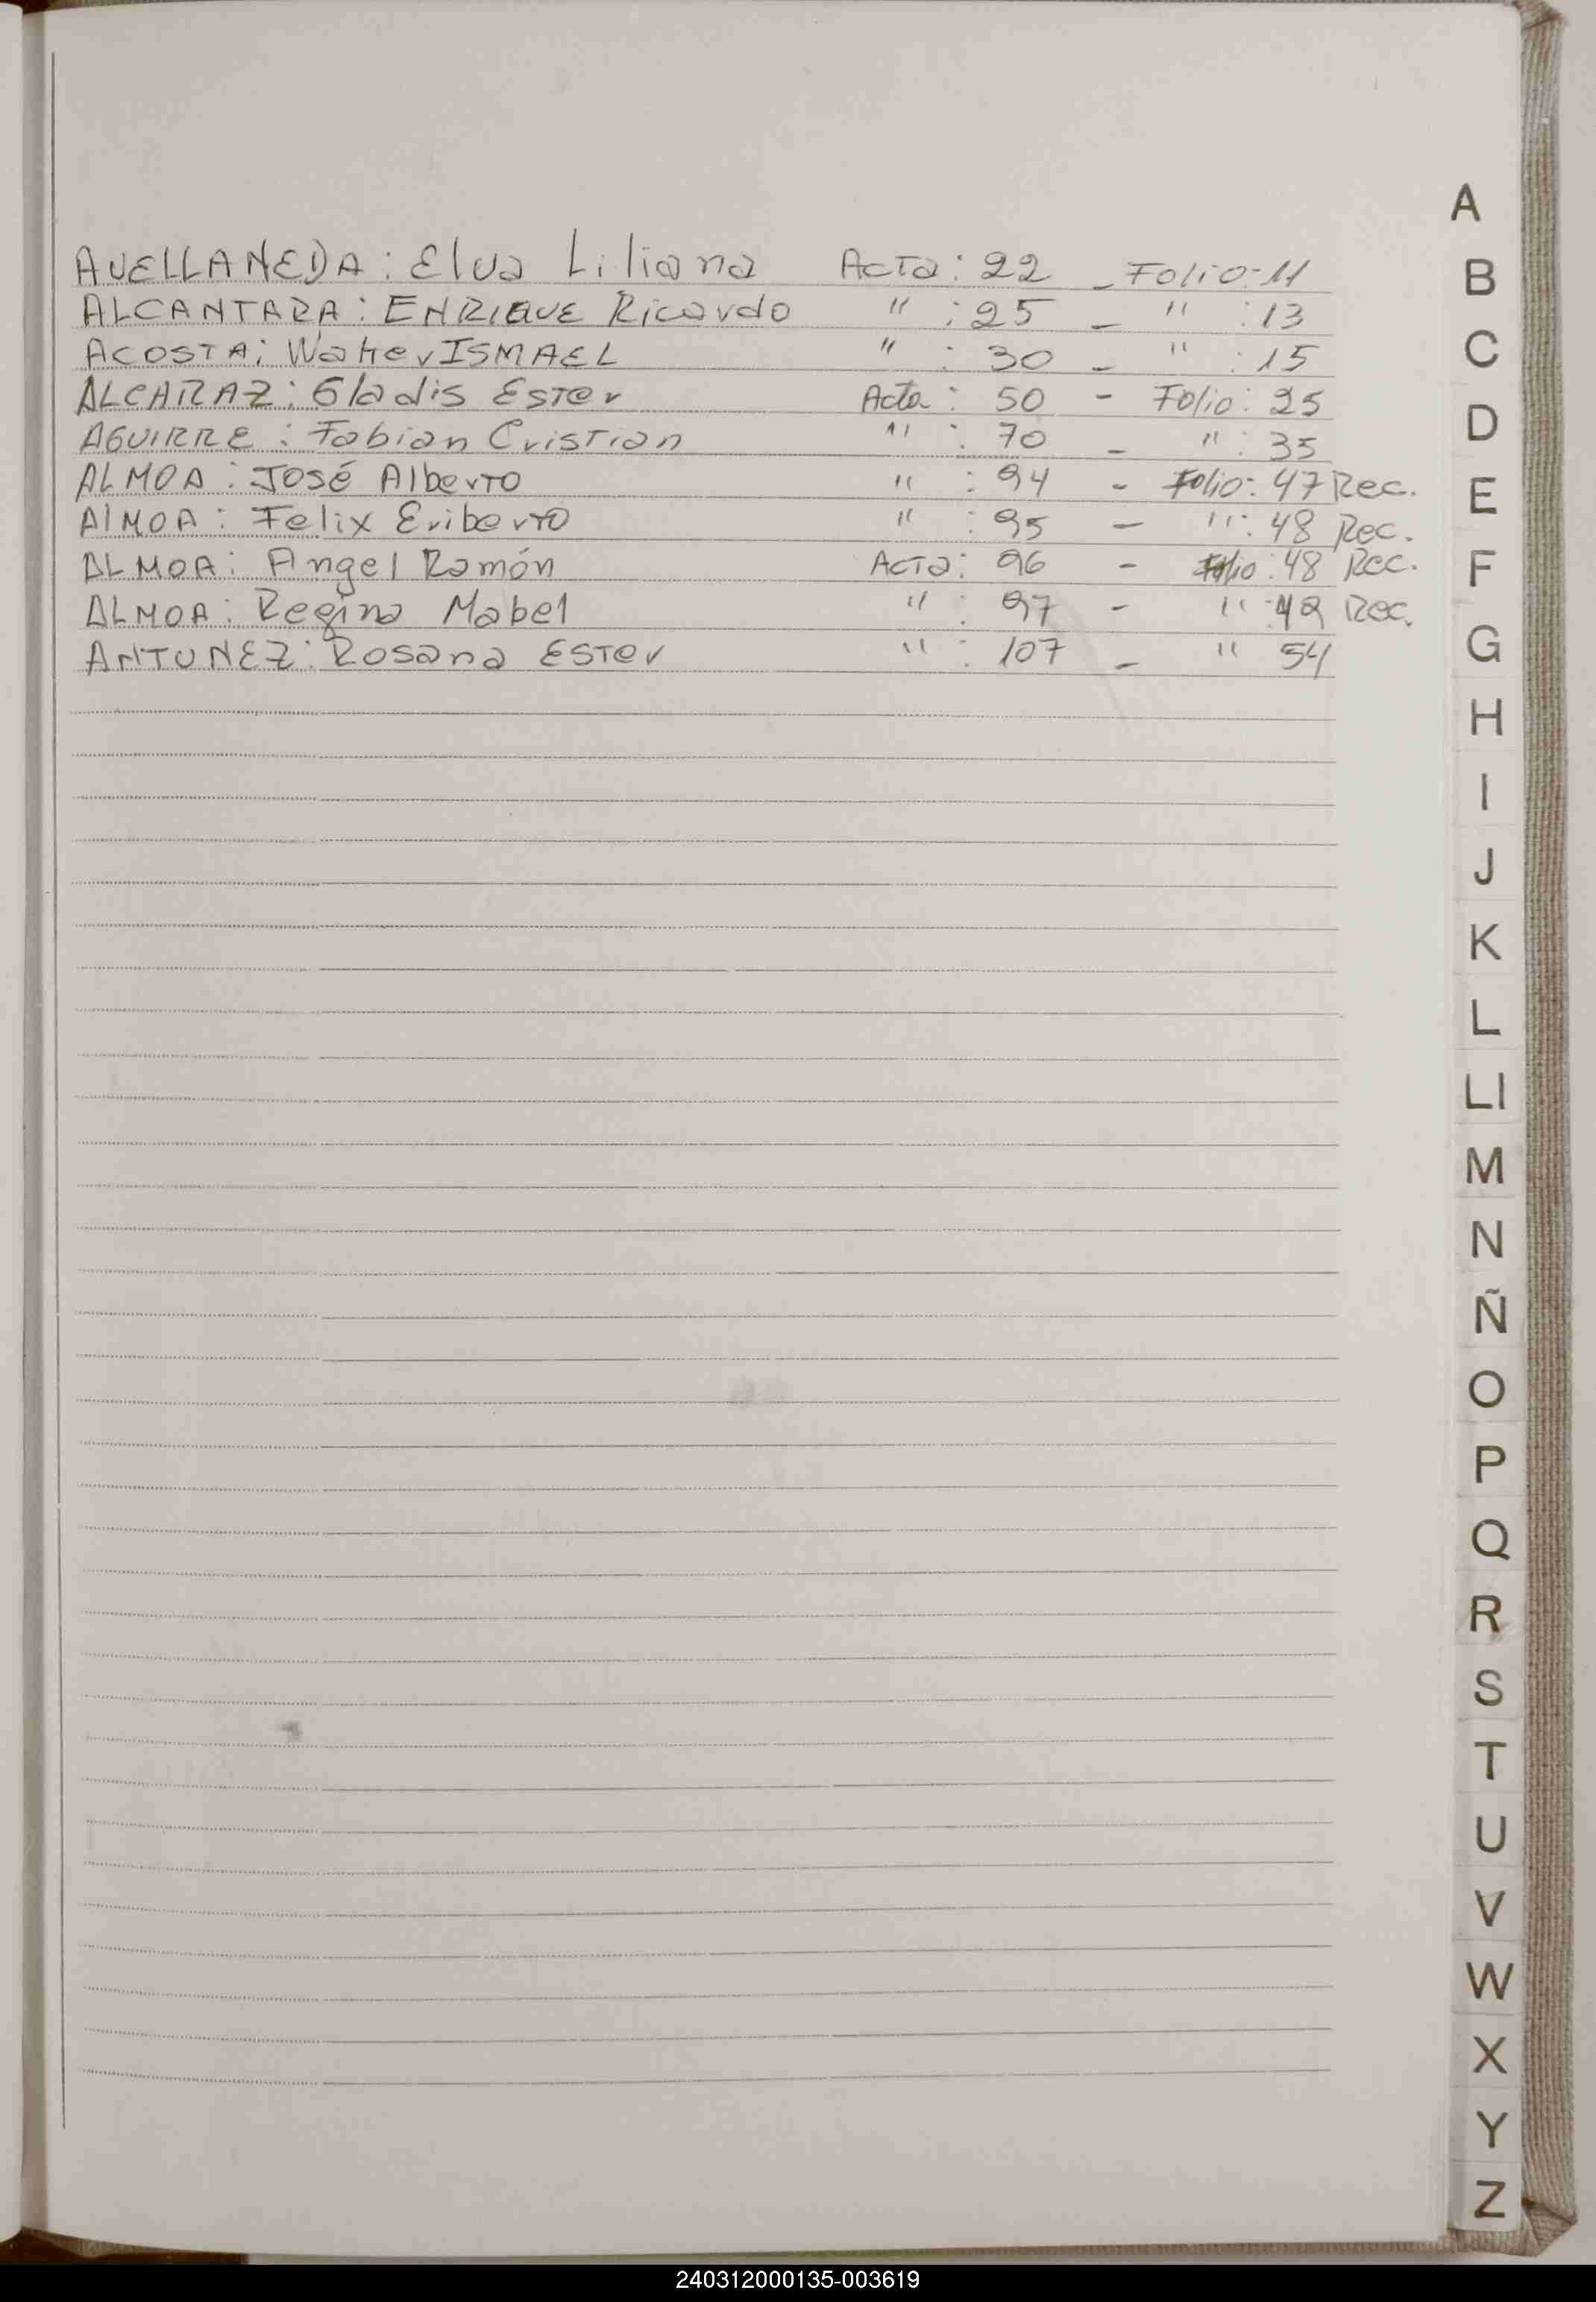 A
AVELLANEDA: Elva Liliana Acta: 22 - Folio: 11
ALCANTARA: ENRIQUE Ricardo " : 25 - " : 13
ACOSTA: Walter ISMAEL " : 30 - " : 15
ALCARAZ: Gladis Ester Acta: 50 - Folio: 25
AGUIRRE: Fabian Cristian " : 70 - " : 35
ALMOA: José Alberto " : 94 - Folio: 47 Rec.
AlMOA: Felix Eriberto " : 95 - " : 48 Rec.
ALMOA: Angel Ramón Acta: 96 - Folio: 48 Rec.
ALMOA: Regina Mabel " : 97 - " : 49 Rec.
ANTUNEZ: Rosana Ester " : 107 - " 54
B
C
D
E
F
G
H
I
J
K
L
Ll
M
N
Ñ
O
P
Q
R
S
T
U
V
W
X
Y
Z
240312000135-003619